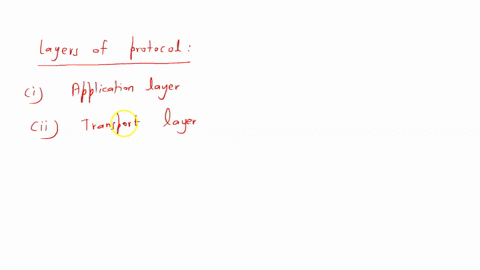 layers of protocol:
(i) Application layer
(ii) Transport layer